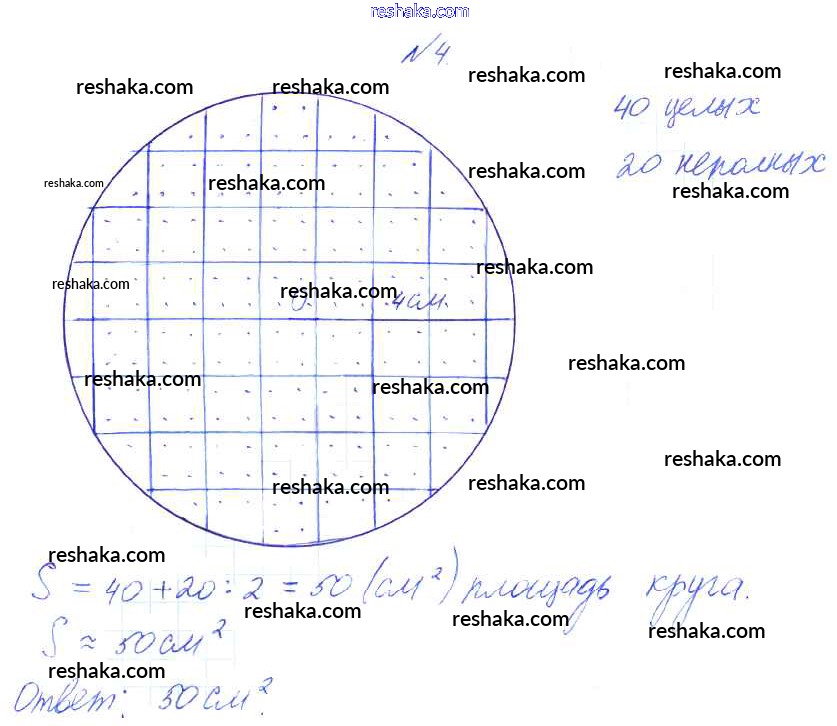 reshaka.com
№4.
reshaka.com reshaka.com reshaka.com reshaka.com
40 целых
reshaka.com reshaka.com reshaka.com
20 неполных
reshaka.com
reshaka.com
reshaka.com reshaka.com
O 4 см.
reshaka.com
reshaka.com reshaka.com
reshaka.com
reshaka.com reshaka.com
reshaka.com
S = 40 + 20 : 2 = 50 (см²) площадь круга.
reshaka.com reshaka.com reshaka.com
S ≈ 50 см²
reshaka.com
Ответ: 50 см².